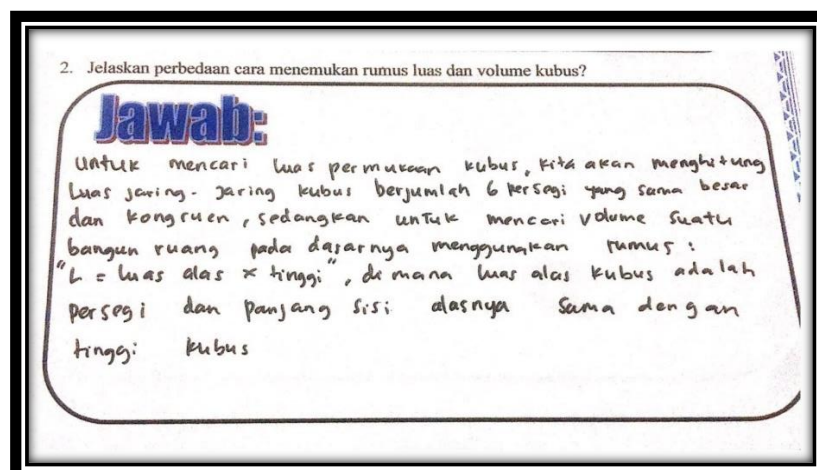 2. Jelaskan perbedaan cara menemukan rumus luas dan volume kubus?
Jawab:
untuk mencari luas permukaan kubus, kita akan menghitung
Luas jaring-jaring kubus berjumlah 6 persegi yang sama besar
dan kongruen, sedangkan untuk mencari volume suatu
bangun ruang pada dasarnya menggunakan rumus :
"L = luas alas × tinggi", di mana luas alas kubus adalah
persegi dan panjang sisi alasnya sama dengan
tinggi kubus